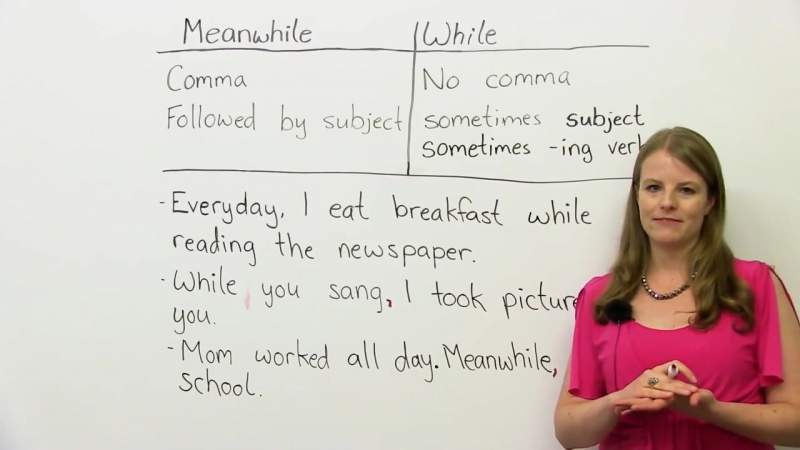 Meanwhile While
Comma No comma
Followed by subject sometimes subject
sometimes -ing
- Everyday, I eat breakfast while
reading the newspaper.
- While you sang, I took
you.
- Mom worked all day. Meanwhile,
school.